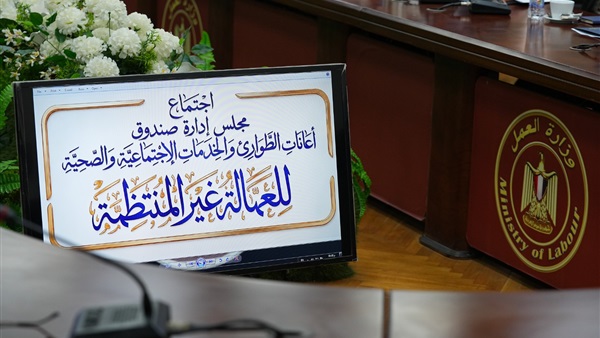 اجتماع
مجلس إدارة صندوق
أعانات الطوارئ والخدمات الإجتماعية والصحية
للعمالة غير المنتظمة
وزارة العمل
Ministry of Labour